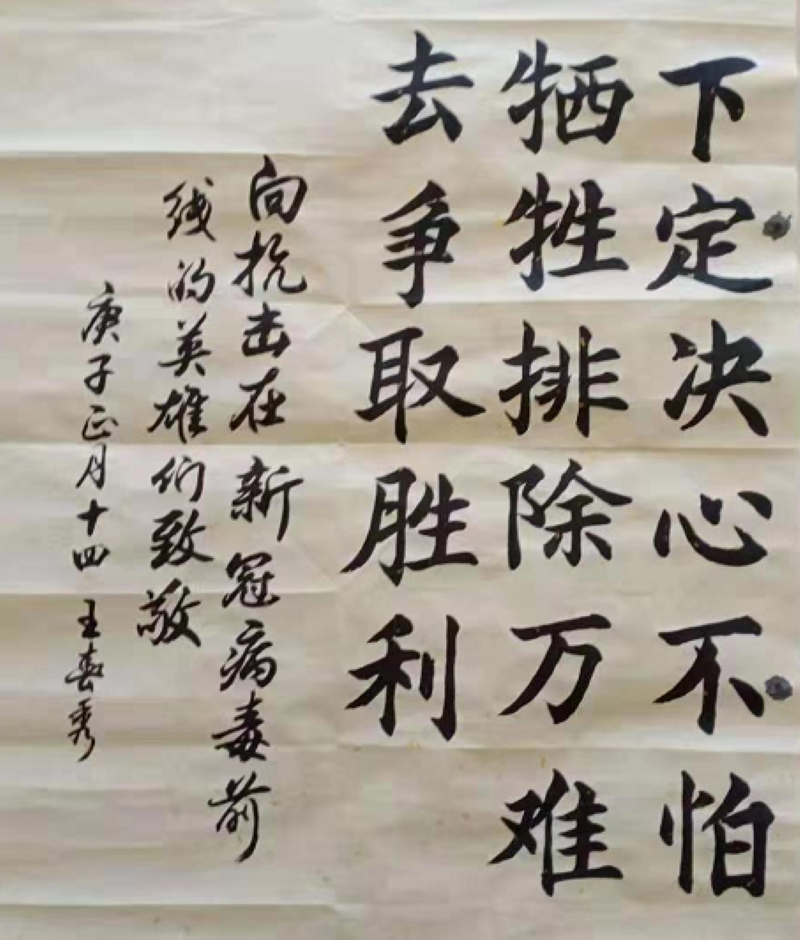 下定决心不怕
牺牲排除万难
去争取胜利
向抗击在新冠病毒前
线的英雄们致敬
庚子正月十四王春秀